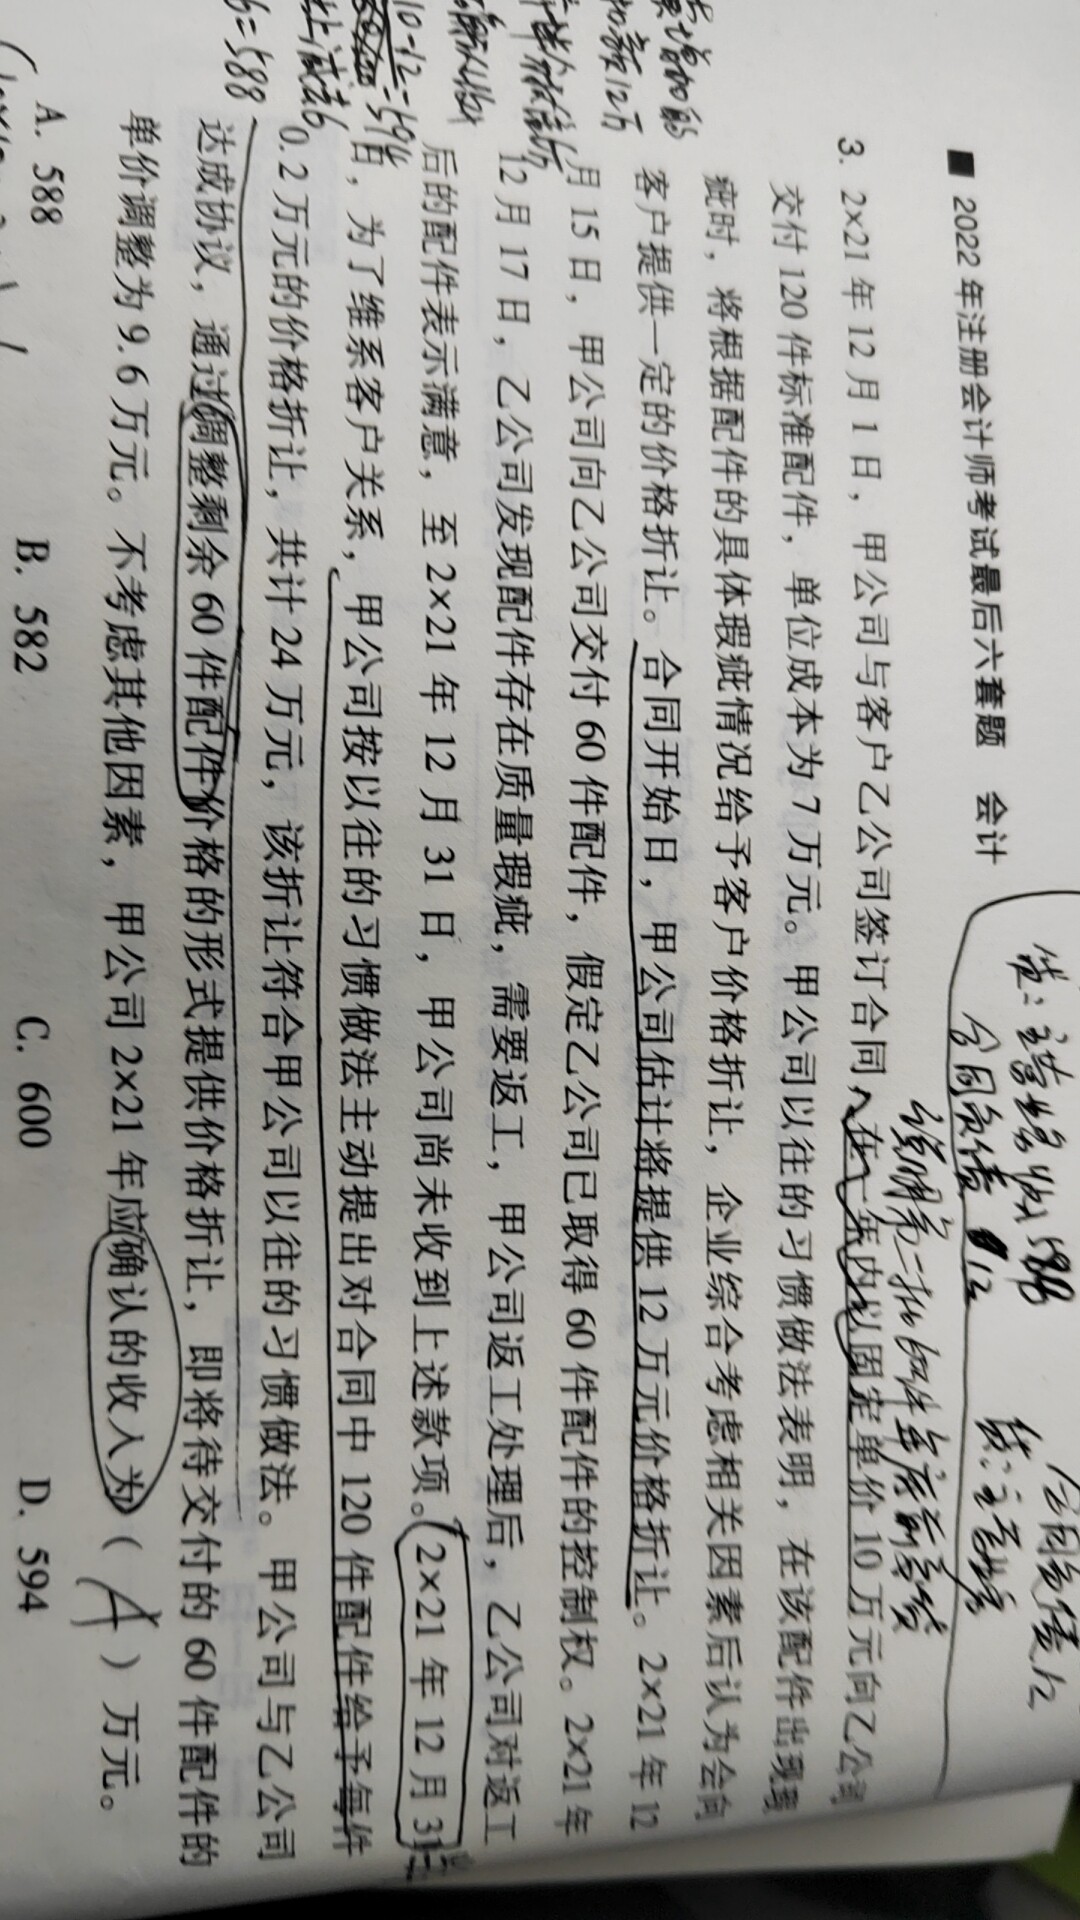 ■ 2022 年注册会计师考试最后六套题 会计
借：主营业务收入 588
合同负债 12
贷：主营业务
合同负债 12
说明第二批
3. 2×21 年 12 月 1 日，甲公司与客户乙公司签订合同，在一年内以固定单价 10 万元向乙公司
交付 120 件标准配件，单位成本为 7 万元。甲公司以往的习惯做法表明，在该配件出现瑕
疵时，将根据配件的具体瑕疵情况给予客户价格折让，企业综合考虑相关因素后认为会向
客户提供一定的价格折让。合同开始日，甲公司估计将提供 12 万元价格折让。2×21 年 12
月 15 日，甲公司向乙公司交付 60 件配件，假定乙公司已取得 60 件配件的控制权。2×21 年
12 月 17 日，乙公司发现配件存在质量瑕疵，需要返工，甲公司返工处理后，乙公司对返工
后的配件表示满意，至 2×21 年 12 月 31 日，甲公司尚未收到上述款项。2×21 年 12 月 31
日，为了维系客户关系，甲公司按以往的习惯做法主动提出对合同中 120 件配件给予每件
0. 2 万元的价格折让，共计 24 万元，该折让符合甲公司以往的习惯做法。甲公司与乙公司
达成协议，通过调整剩余 60 件配件价格的形式提供价格折让，即将待交付的 60 件配件的
单价调整为 9. 6 万元。不考虑其他因素，甲公司 2×21 年应确认的收入为（ A ）万元。
A. 588 B. 582 C. 600 D. 594
增加的
12万
10-12=594
6=588